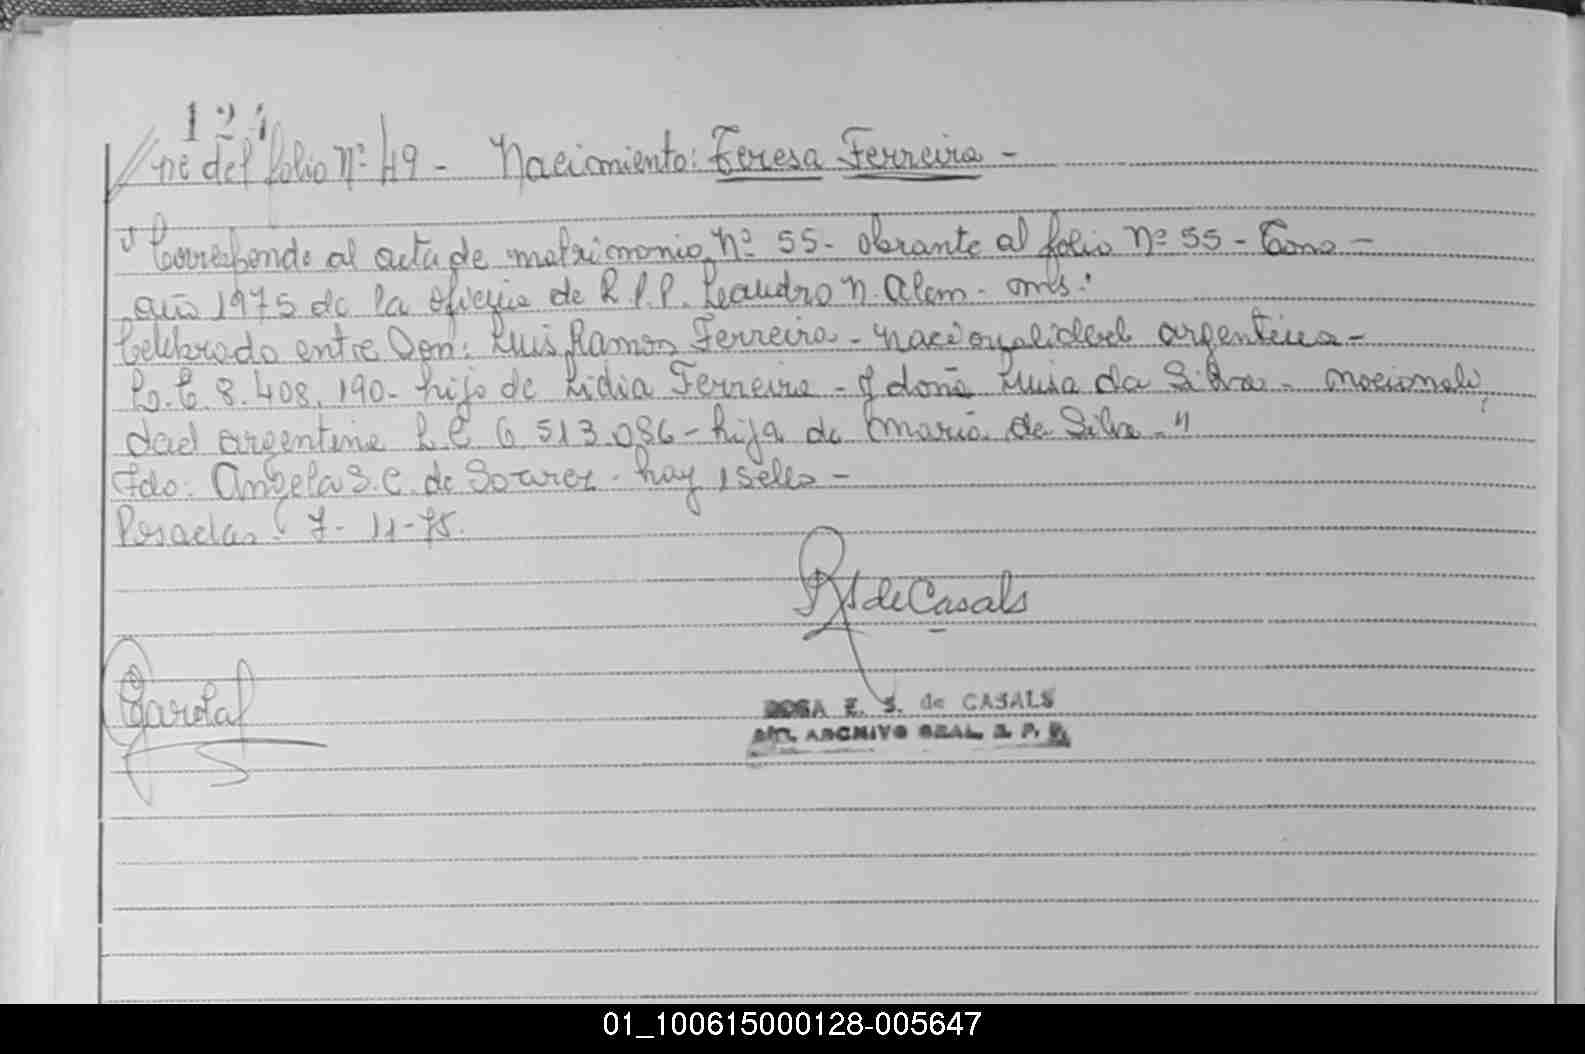 121
//ne del folio Nº 49 - Nacimiento: Teresa Ferreira -
"Corresponde al acta de matrimonio Nº 55 - obrante al folio Nº 55 - Tomo -
año 1975 de la oficina de R.P.P. Leandro N. Alem - Mns.
Celebrado entre Don: Luis Ramon Ferreira - nacionalidad argentina -
L.E. 8.408.190 - hijo de Lidia Ferreira - y doña Luisa da Silva - nacionali
dad argentina L.C. 6.513.086 - hija de Maria da Silva - "
Fdo: Angela S.C. de Soarez - hay 1 sello -
Posadas 7 - 11 - 75.
R S de Casals
ROSA E. S. de CASALS
ARCHIVO GRAL. R. P. P.
01_100615000128-005647